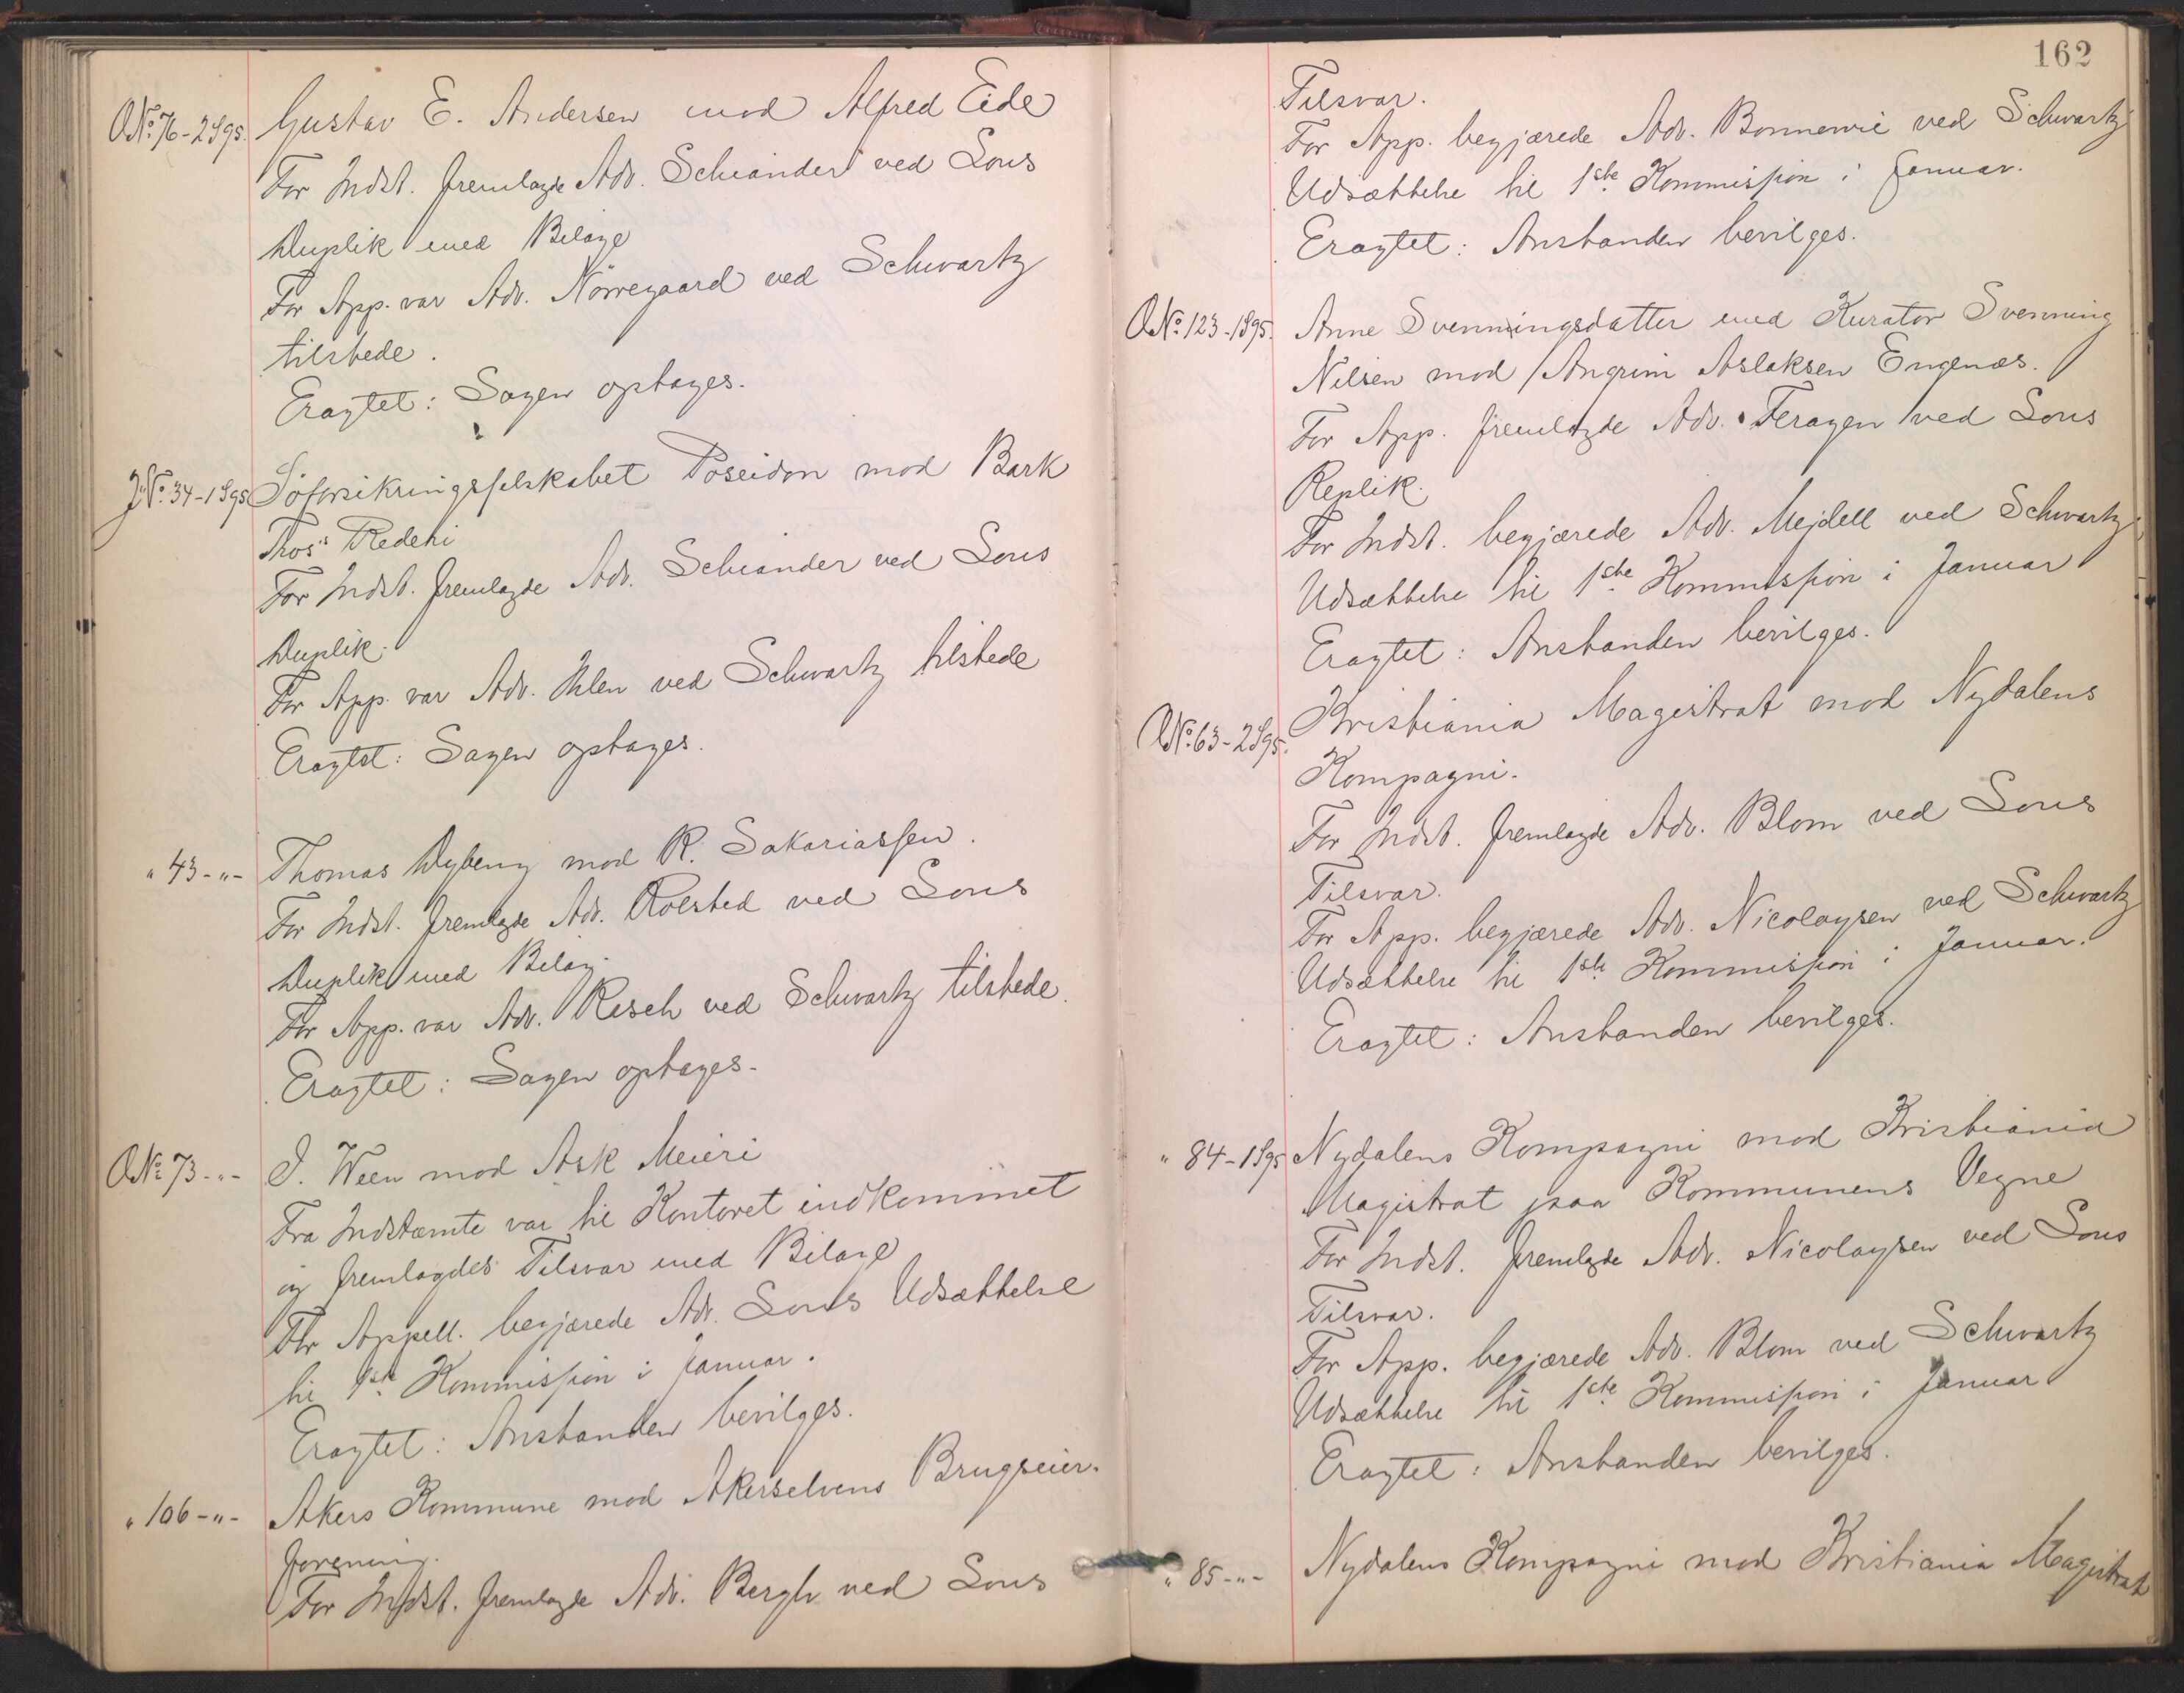 O.№ 76-2/95. Gustav E. Andersen mod Alfred Eide
For Indst. fremlagde Adv. Schiander ved Sous
Duplik med Bilage
For App. var Adv. Nørregaard ved Schwartz
tilstede.
Eragtet: Sagen optages.
J.№ 34-1/95 Søforsikringsselskabet Poseidon mod Bark
Thos's Rederi
For Indst. fremlagde Adv. Schiander ved Sous
Duplik.
For App. var Adv. Ihlen ved Schwartz tilstede
Eragtet: Sagen optages.
" 43-"- Thomas Dyberg mod R. Sakariassen.
For Indst. fremlagde Adv. Rolsted ved Sous
Duplik med Bilag.
For App. var Adv. Resch ved Schwartz tilstede.
Eragtet: Sagen optages.
O.№ 73-"- J. Ween mod Ask Meieri
Fra Indstæmte var til Kontoret indkommet
og fremlagdes Tilsvar med Bilage
For Appell. begjærede Adv. Sous Udsættelse
til 1ste Kommission i Januar.
Eragtet: Anstanden bevilges.
" 106-"- Akers Kommune mod Akerselvens Brugseier-
forening.
For Indst. fremlagde Adv. Bergh ved Sous
162
Tilsvar.
For App. begjærede Adv. Bonnevie ved Schwartz
Udsættelse til 1ste Kommission i Januar.
Eragtet: Anstanden bevilges.
O.№ 123-1/95. Anne Svenningsdatter med Kurator Svenning
Nilsen mod Angrim Aslaksen Engenæs.
For App. fremlagde Adv. Feragen ved Sous
Replik.
For Indst. begjærede Adv. Mejdell ved Schwartz
Udsættelse til 1ste Kommission i Januar
Eragtet: Anstanden bevilges.
O.№ 63-2/95. Kristiania Magistrat mod Nydalens
Kompagni.
For Indst. fremlagde Adv. Blom ved Sous
Tilsvar.
For App. begjærede Adv. Nicolaysen ved Schwartz
Udsættelse til 1ste Kommission i Januar.
Eragtet: Anstanden bevilges.
" 84-1/95 Nydalens Kompagni mod Kristiania
Magistrat paa Kommunens Vegne
For Indst. fremlagde Adv. Nicolaysen ved Sous
Tilsvar.
For App. begjærede Adv. Blom ved Schwartz
Udsættelse til 1ste Kommission i Januar
Eragtet: Anstanden bevilges.
" 85-"- Nydalens Kompagni mod Kristiania Magistrat